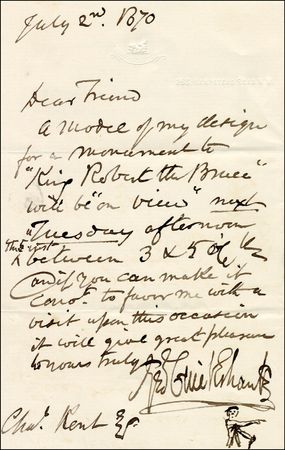 July 2nd. 1870
Dear Friend
A model of my design
for a monument to
"King Robert the Bruce"
will be "on view" next
"Tuesday afternoon
The 5 inst
between 3 & 5 o'c
and if you can make it
conv.t to favor me with a
visit upon this occasion
it will give great pleasure
to yours truly
Geo Cruikshank
Chas. Kent Esq